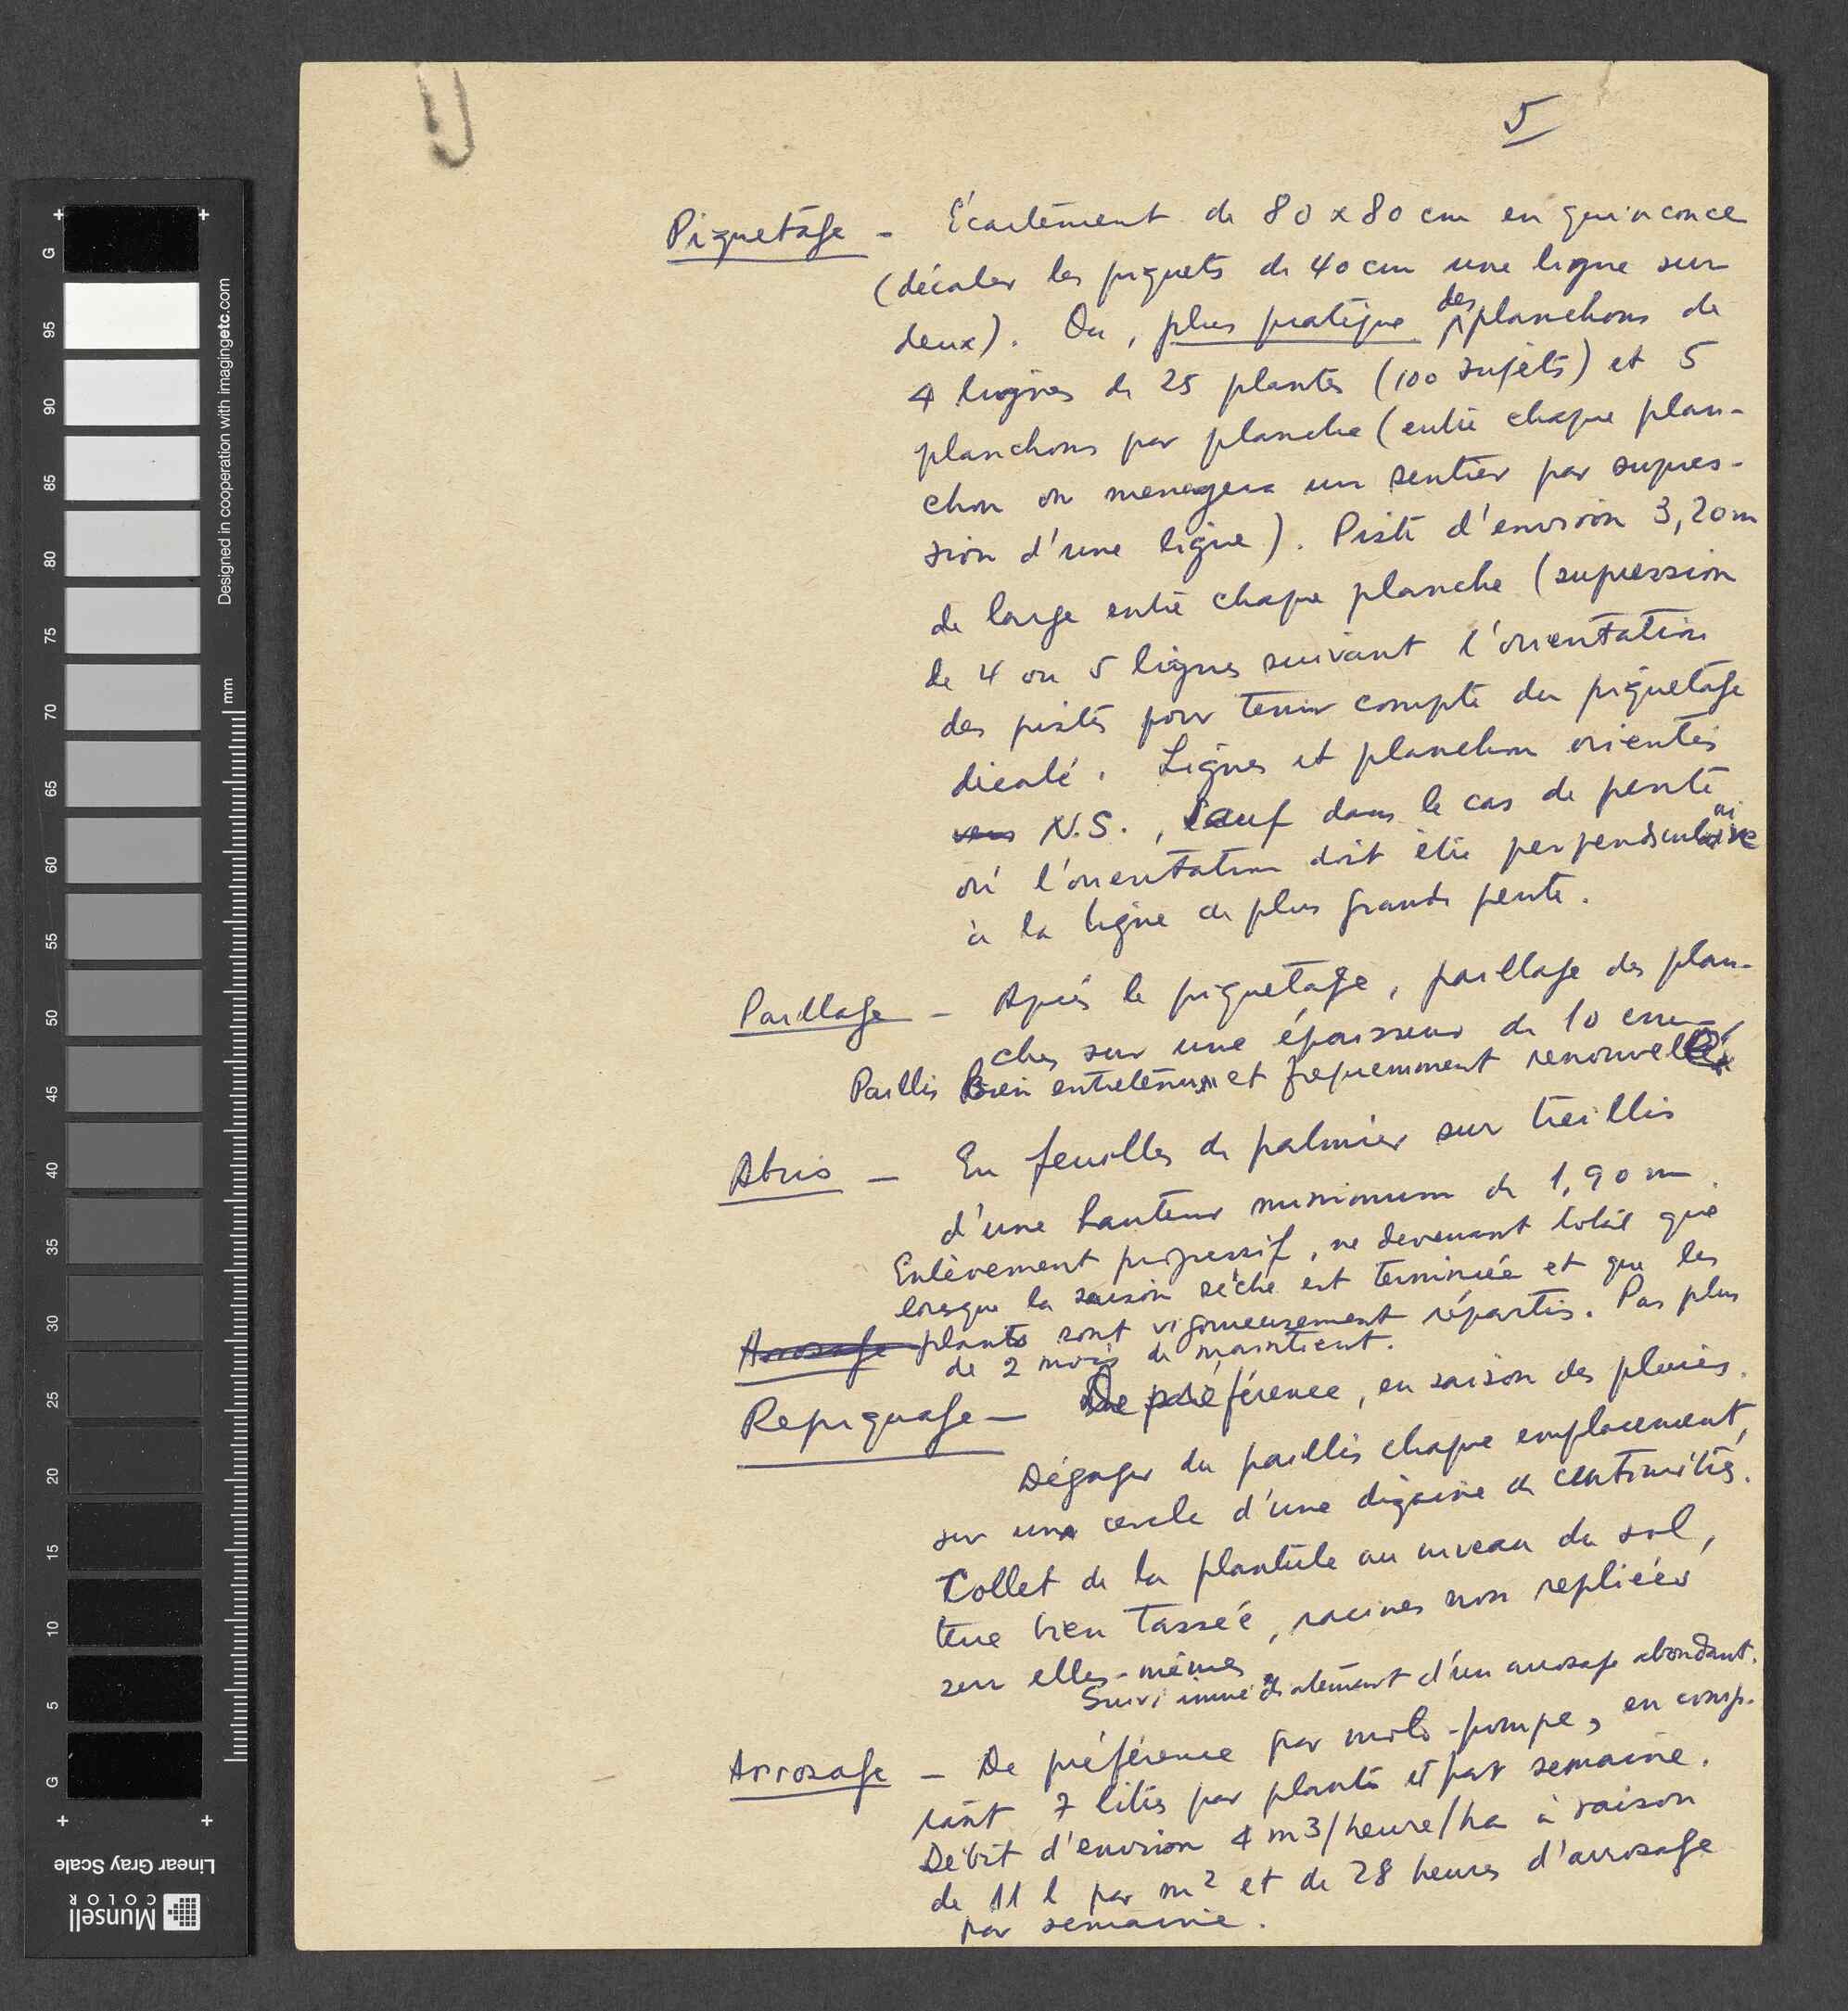 5
Piquetage - Écartement de 80 x 80 cm en quinconce
(décaler les piquets de 40 cm une ligne sur
deux). Ou, plus pratique des planchons de
4 lignes de 25 plantes (100 sujets) et 5
planchons par planche (entre chaque plan-
chon on menagera un sentier par supres-
sion d'une ligne). Piste d'environ 3,20 m
de large entre chaque planche (supression
de 4 ou 5 lignes suivant l'orientation
des pistes pour tenir compte du piquetage
décalé. Lignes et planchon orientés
vers N.S., sauf dans le cas de pente
où l'orientation doit être perpendiculaire
à la ligne de plus grande pente.
Paillage - Après le piquetage, paillage des plan-
ches sur une épaisseur de 10 cm
Paillis Bien entretenu et frequemment renouvelé
Abris - En feuilles de palmier sur treillis
d'une hauteur minimum de 1,90 m.
Enlèvement progressif, ne devenant total que
lorsque la saison sèche est terminée et que les
Arrosage plants sont vigoureusement répartis. Pas plus
de 2 mois de maintient.
Repiquage - De préférence, en saison des pluies.
Dégager du paillis chaque emplacement,
sur un cercle d'une dizaine de centimètres.
Collet de la plantule au niveau du sol,
terre bien tassée, racines non repliées
sur elles-mêmes
Suivi immédiatement d'un arrosage abondant.
Arrosage - De préférence par moto-pompe, en comp-
tant 7 litres par plants et par semaine.
Débit d'environ 4 m3/heure/ha à raison
de 11 l par m2 et de 28 heures d'arrosage
par semaine.
G
95
90
85
80
75
70
65
60
55
50
45
40
35
30
25
20
15
10
5
G
Designed in cooperation with imagingetc.com
mm
Linear Gray Scale
Munsell
COLOR